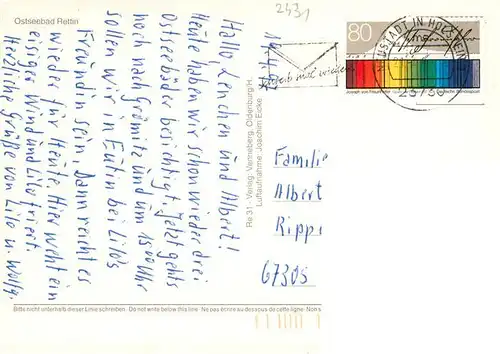 Ostseebad Rettin
14.4.
Hallo, Lenchen und Albert!
Heute haben wir schon wieder drei
Ostseebäder besichtigt. Jetzt gehts
noch nach Grömitz und um 15⁰⁰ Uhr
sollen wir in Eutin bei Lilo's
Freundin sein. Dann reicht es
wieder für Heute. Hier weht ein
eisiger Wind und Lilo friert.
Herzliche Grüße von Lilo u. Wolfg.
Re 31 - Verlag: Venneberg, Oldenburg/H.
Luftaufnahme: Joachim Eicke
2431
80
Schreib mal wieder
NEUSTADT IN HOLSTEIN
23730
Familie
Albert
Ripp
67305
Bitte nicht unterhalb dieser Linie schreiben. Do not write below this line. Ne pas écrire au-dessous de cette ligne. Non s